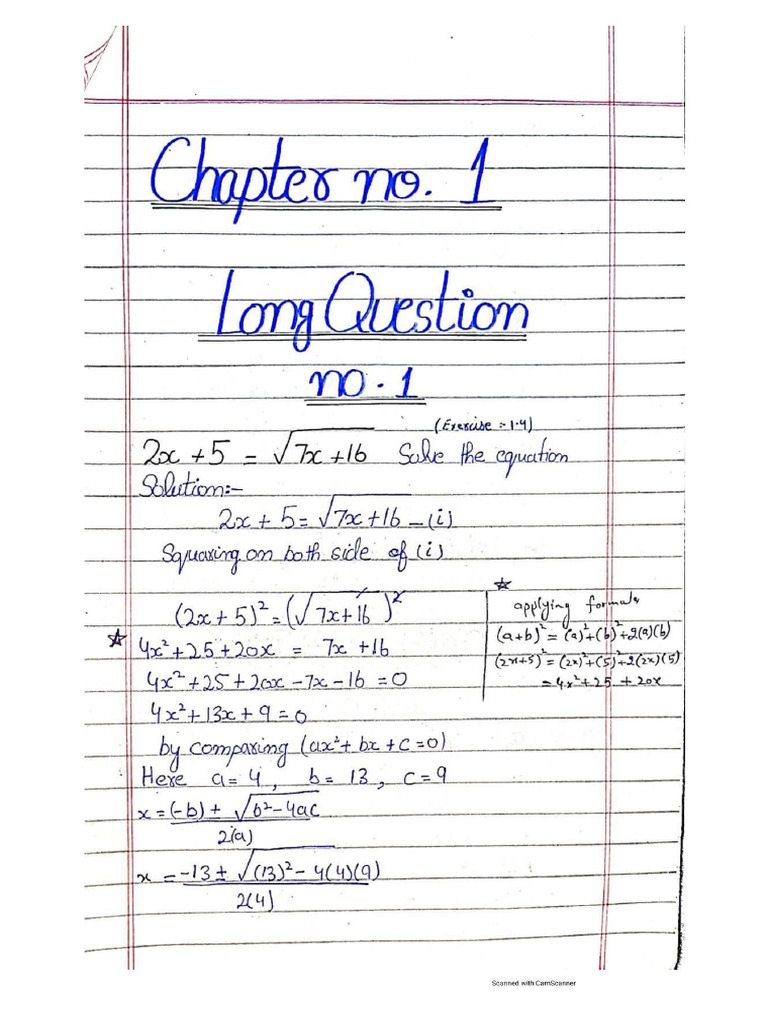 Chapter no. 1
Long Question
no. 1
(Exercise :- 1.4)
2x + 5 = √7x + 16 Solve the equation
Solution:-
2x + 5 = √7x + 16 - (i)
Squaring on both side of (i)
(2x + 5)² = (√7x + 16)²
4x² + 25 + 20x = 7x + 16
4x² + 25 + 20x - 7x - 16 = 0
4x² + 13x + 9 = 0
by comparing (ax² + bx + c = 0)
Here a = 4, b = 13, c = 9
x = (-b) ± √b² - 4ac
2(a)
x = -13 ± √(13)² - 4(4)(9)
2(4)
applying formula
(a+b)² = (a)² + (b)² + 2(a)(b)
(2x+5)² = (2x)² + (5)² + 2(2x)(5)
= 4x² + 25 + 20x
Scanned with CamScanner